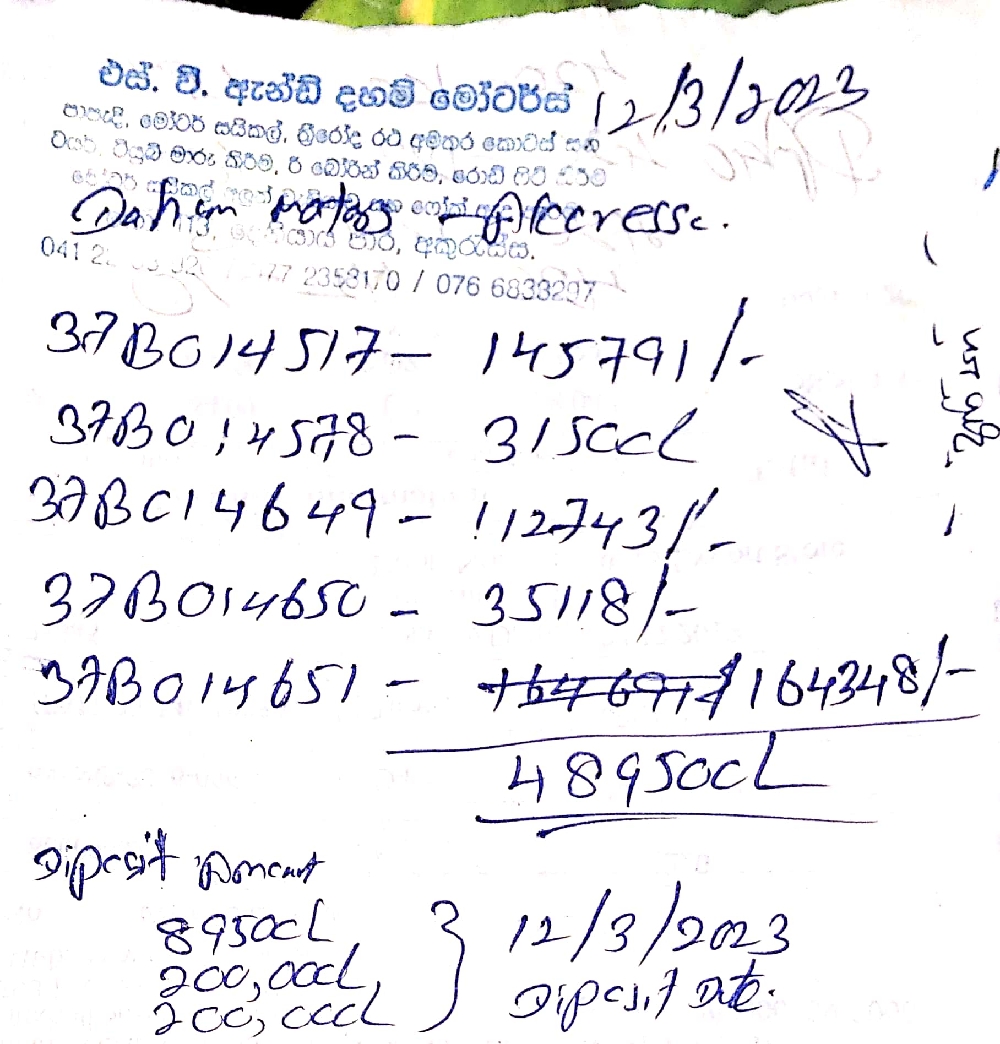 එස්. වී. ඇන්ඩ් දහම් මෝටර්ස් 12/3/2023
පාපැදි, මෝටර් සයිකල්, ත්‍රීරෝද රථ අමතර කොටස් සහ
ටයර්, ටියුබ් මාරු කිරීම, රී බෝරින් කිරීම,
Daham motors - Akuressa.
පාර, අකුරැස්ස.
041 2 77 2353170 / 076 6833297
37B014517 - 145791/-
37B014578 - 31500/-
37B014649 - 112743/-
37B014650 - 35118/-
37B014651 - 164348/-
489500/-
Diposit Amount
89500/-
200,000/-
200,000/-
12/3/2023
Diposit Date.